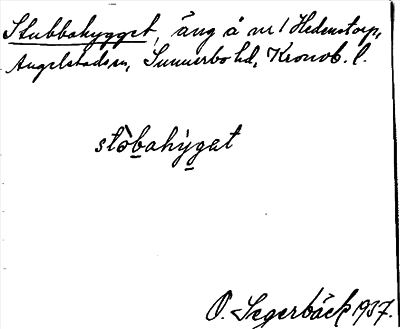 Stubbahygget, äng å nr 1 Hedenstorp,
Angelstads sn, Sunnerbo hd, Kronob. l.
stòbahỳgat
O. Segerbäck 1937.